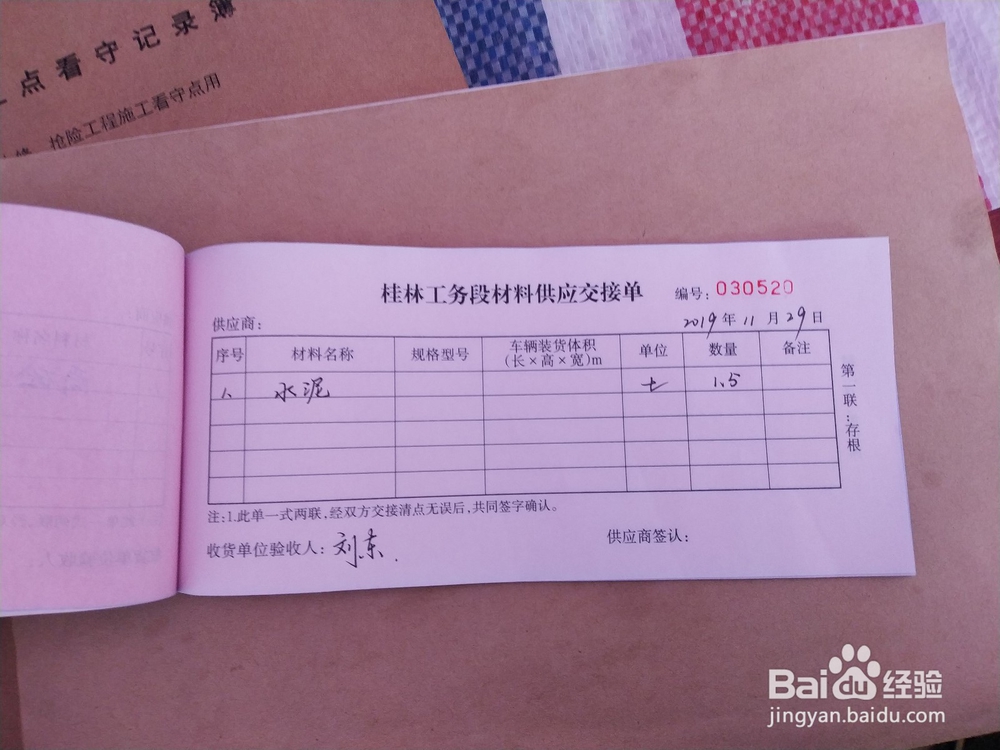 点看守记录簿
抢险工程施工看守点用
桂林工务段材料供应交接单 编号:030520
供应商: 2019年11月29日
序号 材料名称 规格型号 车辆装货体积(长×高×宽)m 单位 数量 备注
1、 水泥 t 1.5
第一联:存根
注:1.此单一式两联,经双方交接清点无误后,共同签字确认。
收货单位验收人:刘东. 供应商签认:
Baidu经验
jingyan.baidu.com